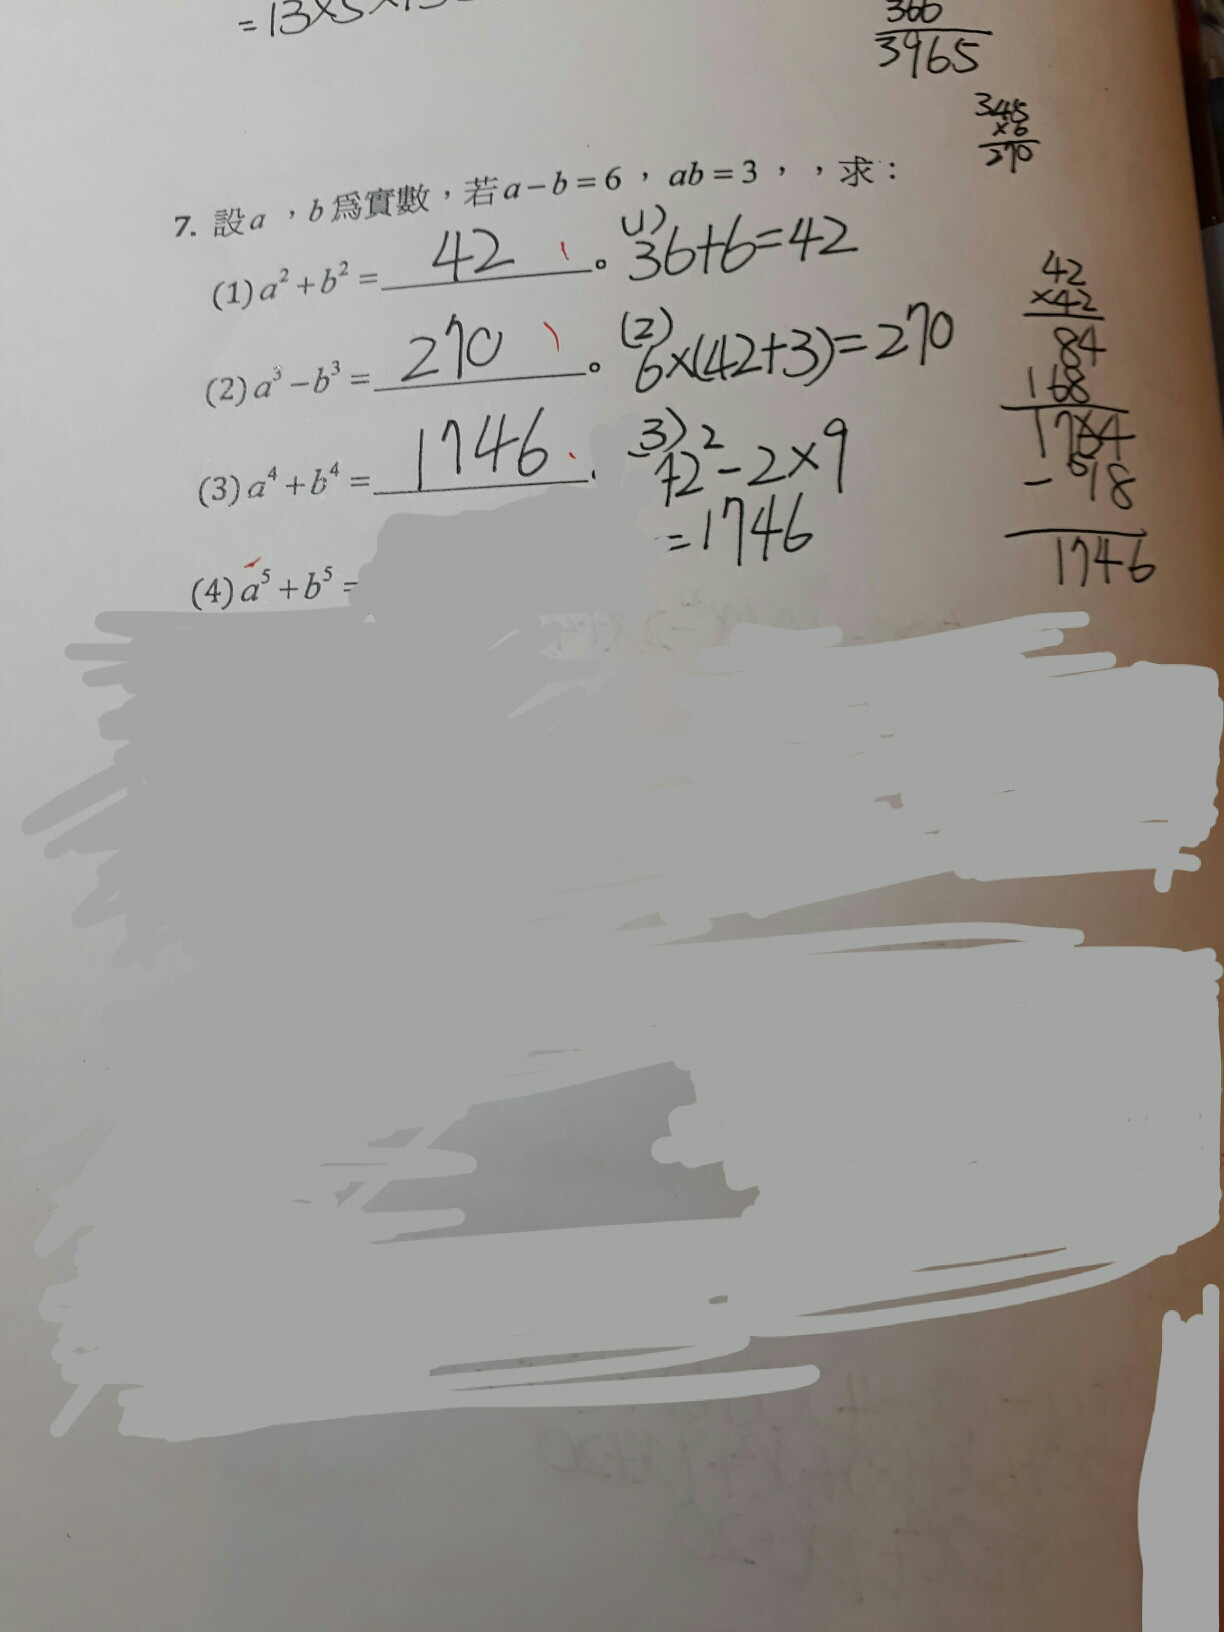 = 13×5×13
366
3965
345
×6
270
7. 設a，b為實數，若a－b＝6，ab＝3，，求：
(1) a²＋b²＝ 42 。 (1) 36+6=42
(2) a³－b³＝ 270 。 (2) 6×(42+3)=270
(3) a⁴＋b⁴＝ 1746 (3) 42²-2×9
=1746
(4) a⁵＋b⁵＝
42
×42
84
168
1764
- 18
1746